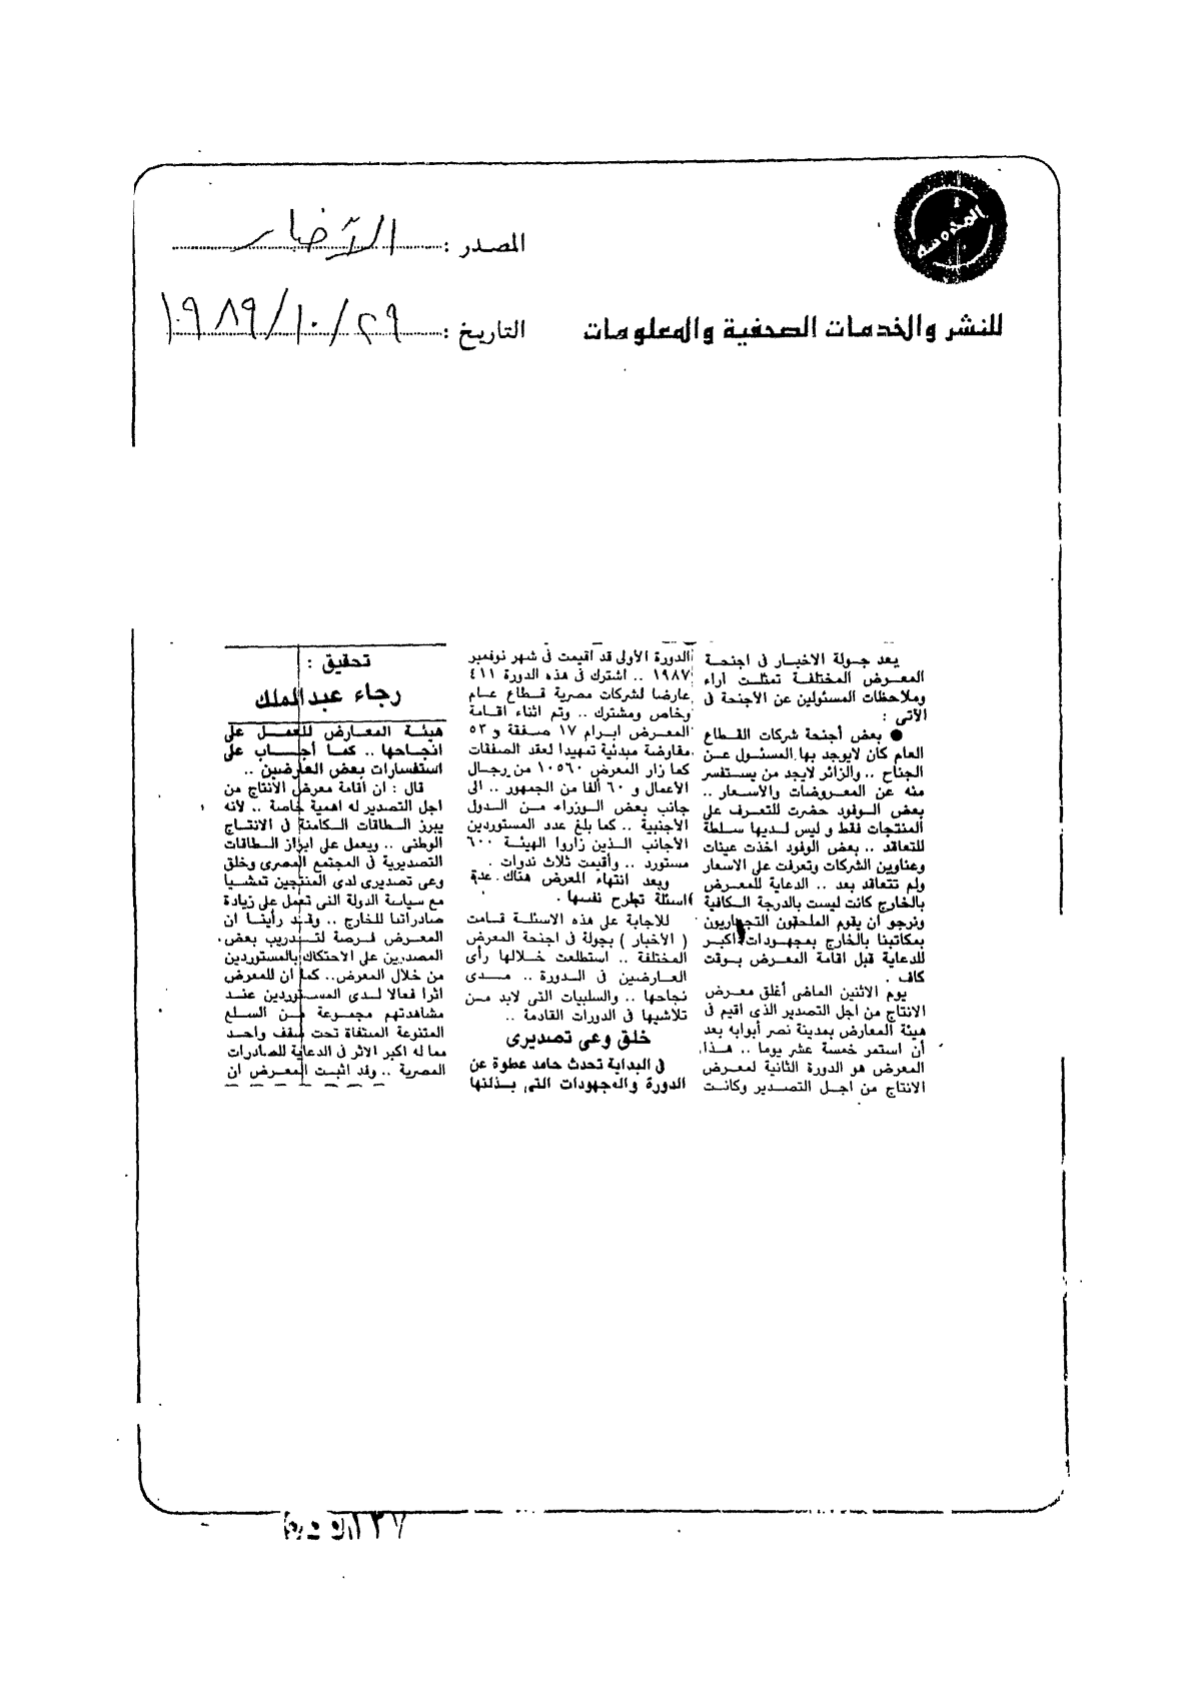 المصدر : الأخبار
التاريخ : ٢٩/١٠/١٩٨٩
للنشر والخدمات الصحفية والمعلومات
يعد جولة الاخبار فى اجنحة
المعرض المختلفة تمثلت اراء
وملاحظات المسئولين عن الاجنحة فى
الآتى :
● بعض أجنحة شركات القطاع
العام كان لايوجد بها المسئول عن
الجناح .. والزائر لايجد من يستفسر
منه عن المعروضات والاسعار ..
بعض الوفود حضرت للتعرف على
المنتجات فقط و ليس لديها سلطة
للتعاقد .. بعض الوفود اخذت عينات
وعناوين الشركات وتعرفت على الاسعار
ولم تتعاقد بعد .. الدعاية للمعرض
بالخارج كانت ليست بالدرجة الكافية
ونرجو أن يقوم الملحقون التجاريون
بمكاتبنا بالخارج بمجهودات أكبر
للدعاية قبل اقامة المعرض بوقت
كاف .
يوم الاثنين الماضى أغلق معرض
الانتاج من اجل التصدير الذى اقيم فى
هيئة المعارض بمدينة نصر أبوابه بعد
أن استمر خمسة عشر يوما .. هذا
المعرض هو الدورة الثانية لمعرض
الانتاج من اجل التصدير وكانت
الدورة الأولى قد اقيمت فى شهر نوفمبر
١٩٨٧ .. اشترك فى هذه الدورة ٤١١
عارضا لشركات مصرية قطاع عام
وخاص ومشترك .. وتم اثناء اقامة
المعرض ابرام ١٧ صفقة و ٥٣
مفاوضة مبدئية تمهيدا لعقد الصفقات
كما زار المعرض ١٠٥٦٠ من رجال
الأعمال و ٦٠ ألفا من الجمهور .. الى
جانب بعض الوزراء من الدول
الأجنبية .. كما بلغ عدد المستوردين
الأجانب الذين زاروا الهيئة ٦٠٠
مستورد .. وأقيمت ثلاث ندوات .
وبعد انتهاء المعرض هناك عدة
اسئلة تطرح نفسها .
للاجابة على هذه الاسئلة قامت
( الأخبار ) بجولة فى اجنحة المعرض
المختلفة .. استطلعت خلالها رأى
العارضين فى الدورة .. مدى
نجاحها .. والسلبيات التى لابد من
تلاشيها فى الدورات القادمة ..
خلق وعى تصديرى
فى البداية تحدث حامد عطوة عن
الدورة والمجهودات التى بذلتها
تحقيق :
رجاء عبدالملك
هيئة المعارض للعمل على
انجاحها .. كما أجاب على
استفسارات بعض العارضين ..
قال : ان اقامة معرض الانتاج من
اجل التصدير له اهمية خاصة .. لأنه
يبرز الطاقات الكامنة فى الانتاج
الوطنى .. ويعمل على ابراز الطاقات
التصديرية فى المجتمع المصرى وخلق
وعى تصديرى لدى المنتجين تمشيا
مع سياسة الدولة التى تعمل على زيادة
صادراتنا للخارج .. وقد رأينا ان
المعرض فرصة لتدريب بعض
المصدرين على الاحتكاك بالمستوردين
من خلال المعرض.. كما أن للمعرض
اثرا فعالا لدى المستوردين عند
مشاهدتهم مجموعة من السلع
المتنوعة المنتقاة تحت سقف واحد
مما له اكبر الاثر فى الدعاية للصادرات
المصرية .. وقد اثبت المعرض ان